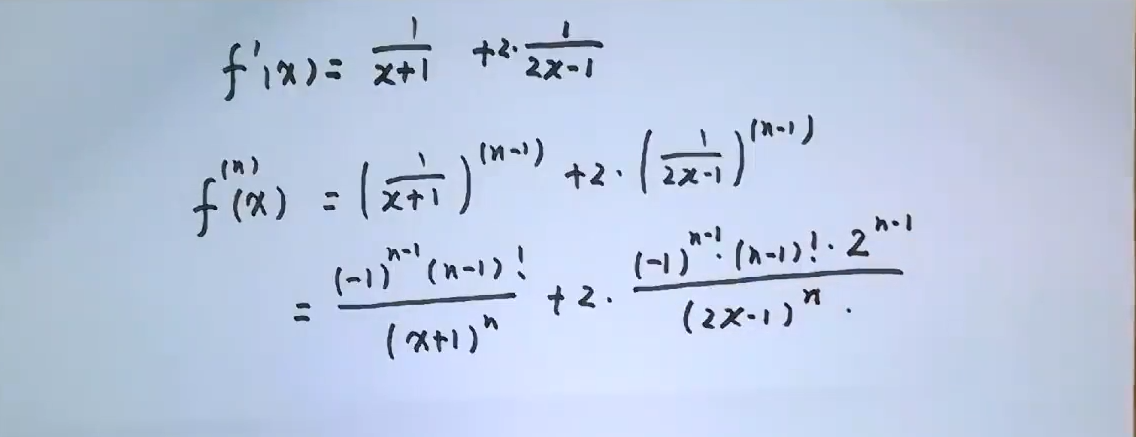 f'(x) = \frac{1}{x+1} + 2 \cdot \frac{1}{2x-1}
f^{(n)}(x) = \left(\frac{1}{x+1}\right)^{(n-1)} + 2 \cdot \left(\frac{1}{2x-1}\right)^{(n-1)}
= \frac{(-1)^{n-1}(n-1)!}{(x+1)^n} + 2 \cdot \frac{(-1)^{n-1} \cdot (n-1)! \cdot 2^{n-1}}{(2x-1)^n}.